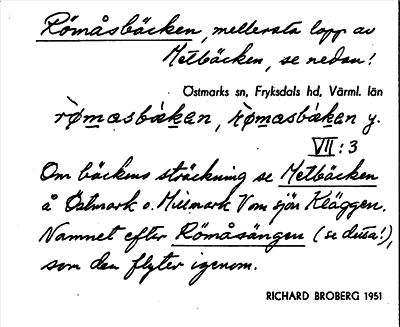 Römåsbäcken, mellersta lopp av
Metbäcken, se nedan!
Östmarks sn, Fryksdals hd, Värml. län
rø̀mασbὰkαn, y.
VII : 3
Om bäckens sträckning se Metbäcken
å Östmark o. Millmark V om sjön Kläggen.
Namnet efter Römåsängen (se dessa!),
som den flyter igenom.
RICHARD BROBERG 1951